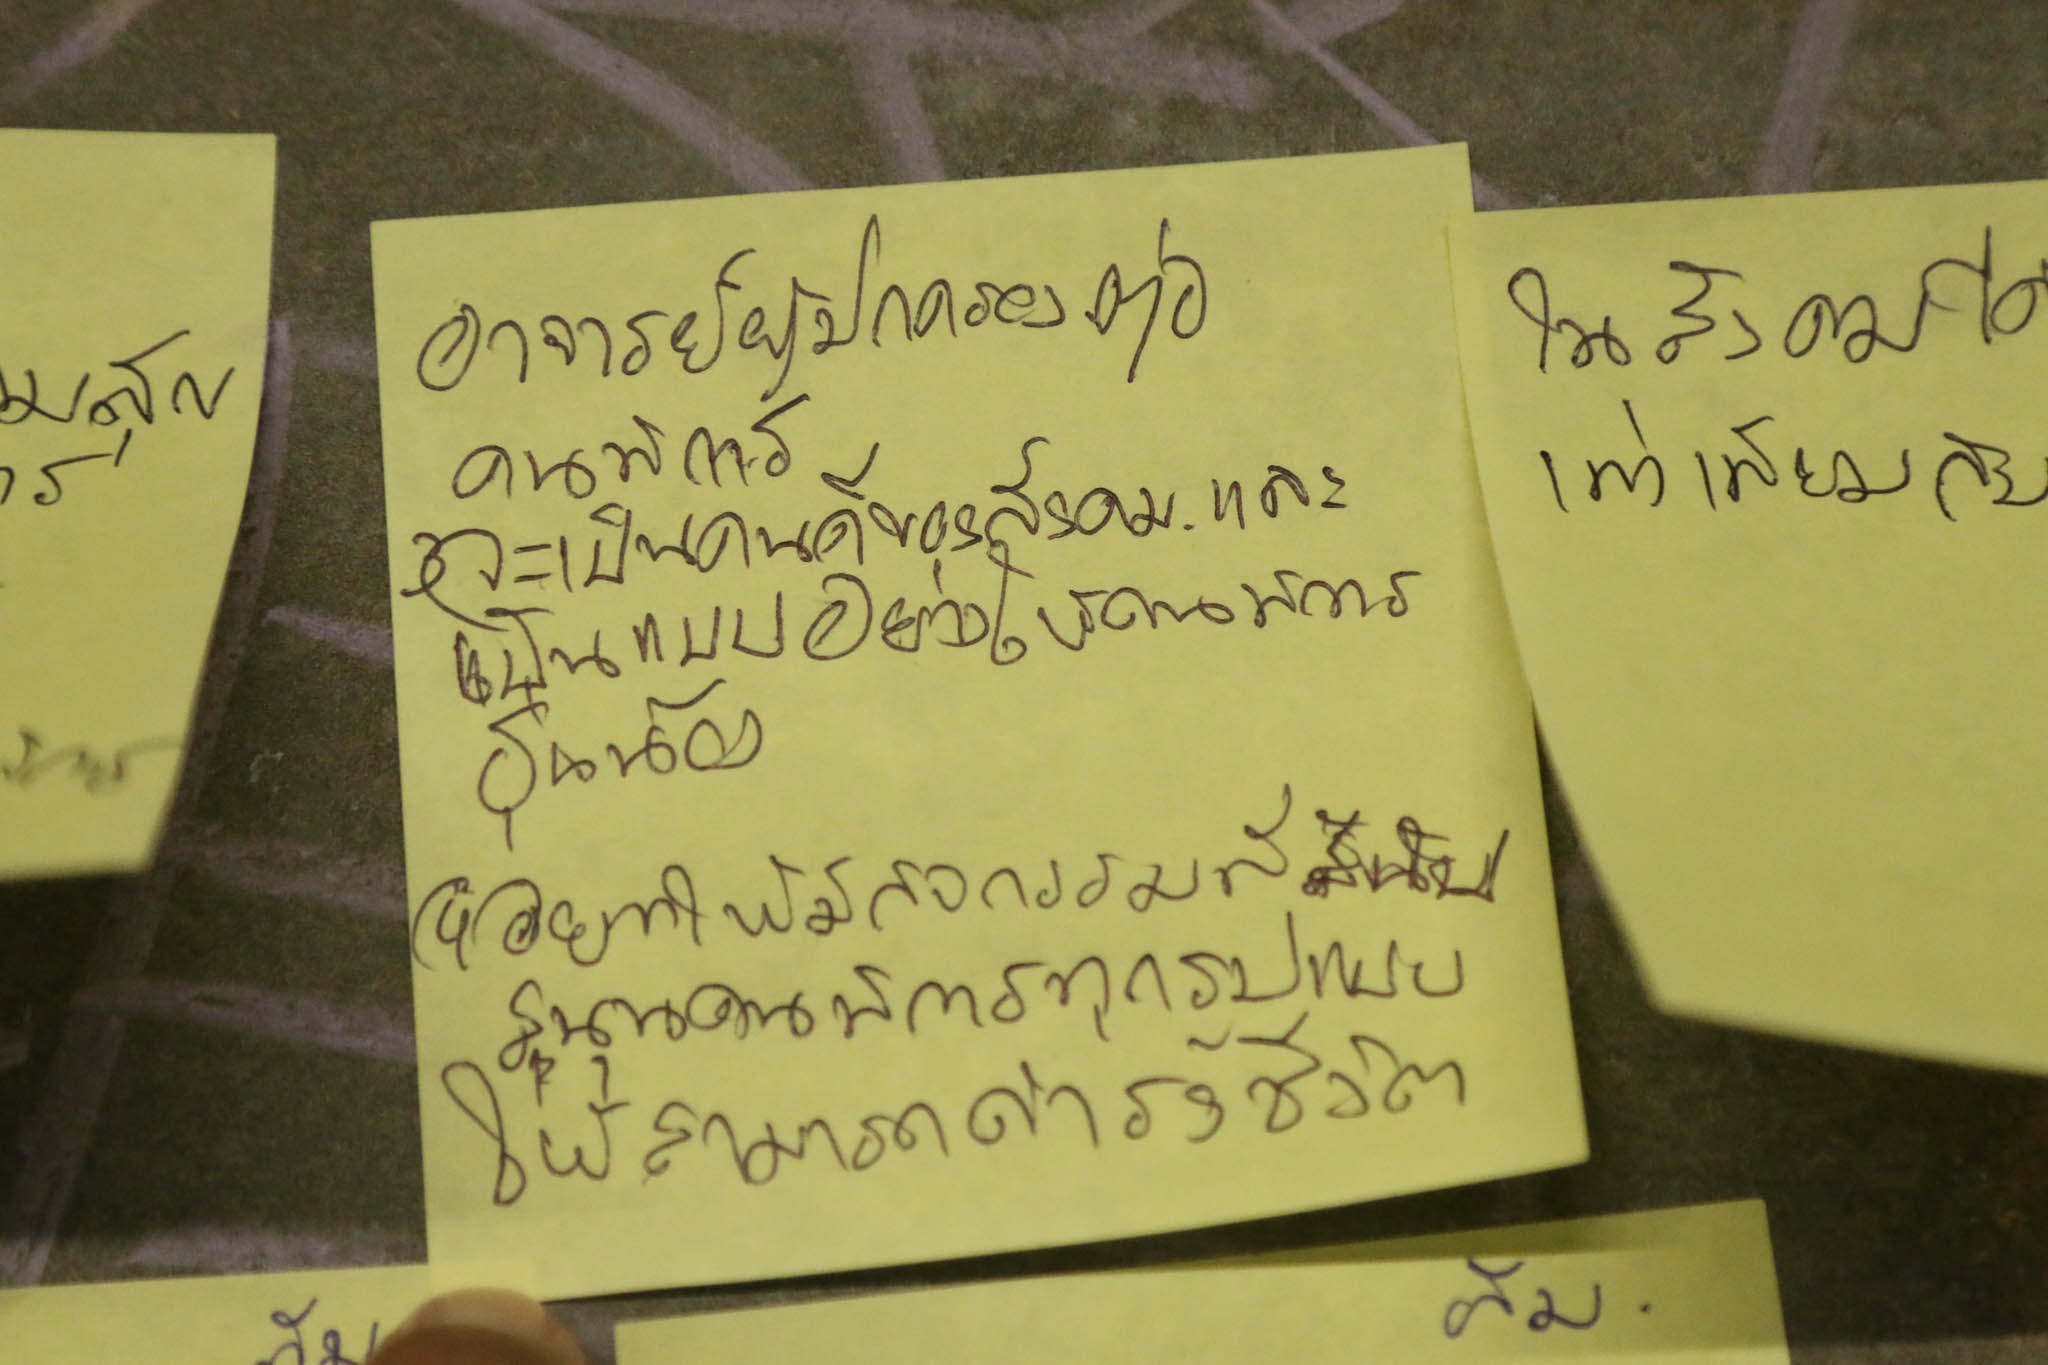 อาจารย์ผู้ปกครองต่อ
คนพิการ
จะเป็นคนดีของสังคม. และ
เป็นแบบอย่างให้คนพิการ
รุ่นน้อง
อยากให้มีกิจกรรมที่
คนพิการทุกรูปแบบ
ให้สามารถดำรงชีวิต
ในสังคมได้
เท่าเทียมกับ